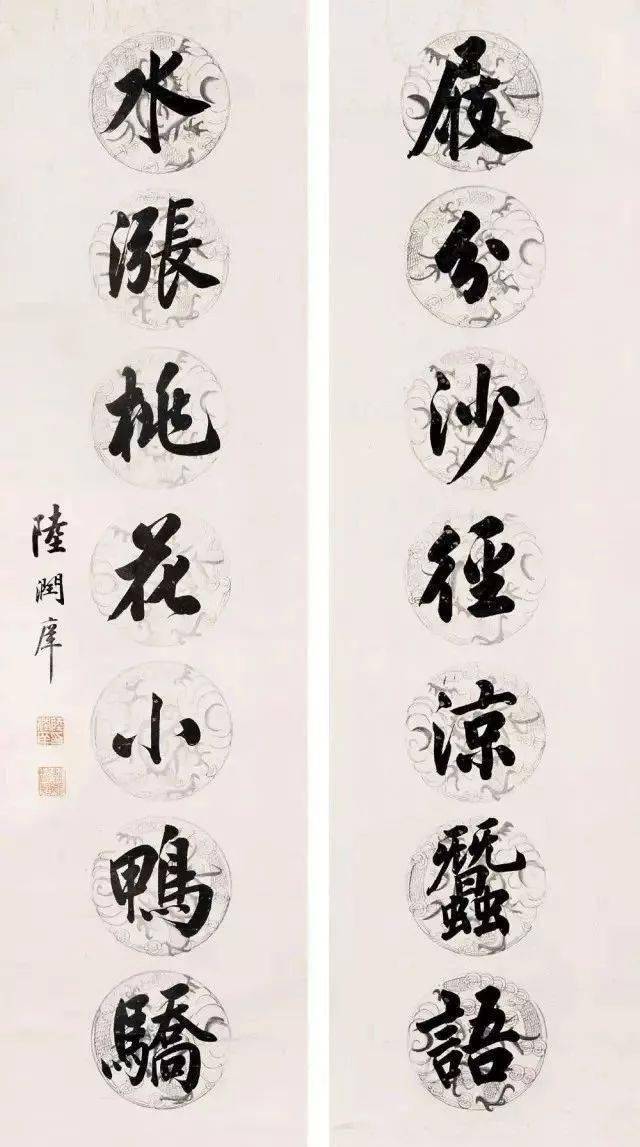 屐分沙徑涼蠶語
水漲桃花小鴨驕
陸潤庠